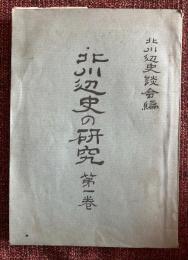 北川辺史談会編
北川辺史の研究
第一巻